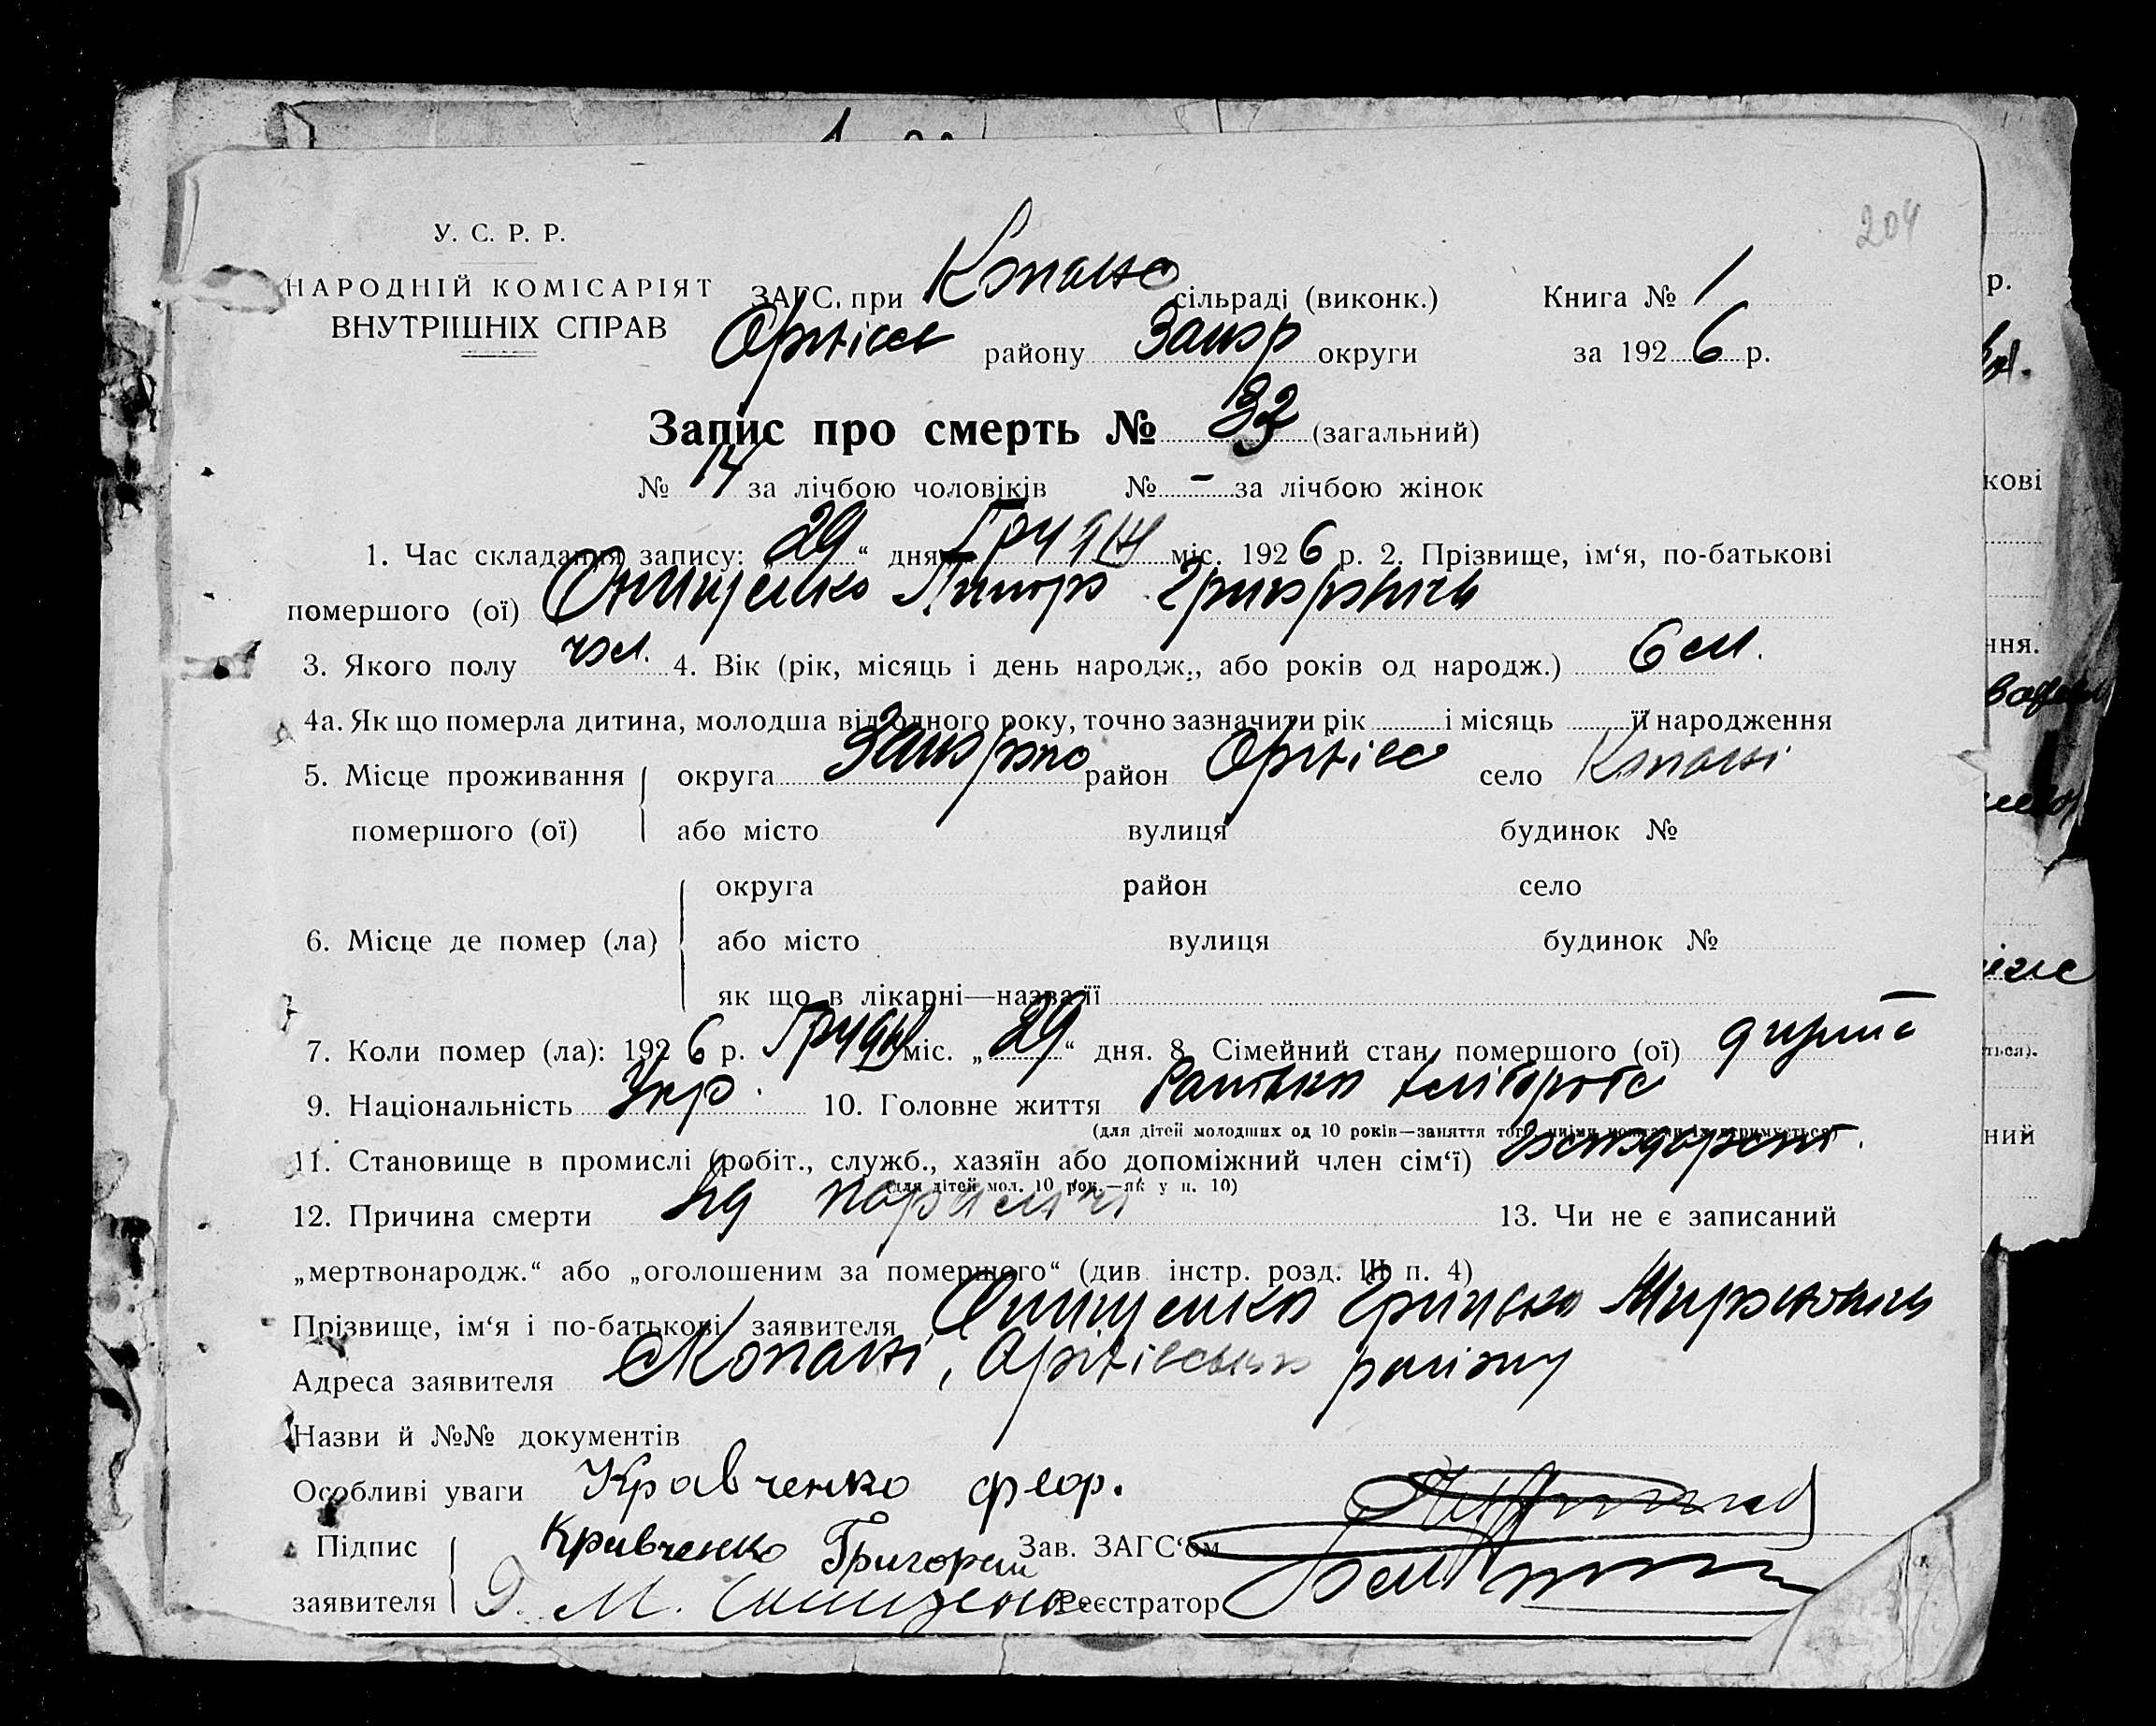 204
У. С. Р. Р.
НАРОДНІЙ КОМІСАРІЯТ
ВНУТРІШНІХ СПРАВ
ЗАГС. при Копано сільраді (виконк.) Книга № 1
Оріхівс району Запор округи за 1926 р.
Запис про смерть № 32 (загальний)
№ 14 за лічбою чоловіків №-за лічбою жінок
1. Час складання запису: „29“ дня Грудня міс. 1926 р. 2. Прізвище, ім‘я, по-батькові
помершого (ої) Онищенко Григорович
3. Якого полу чол. 4. Вік (рік, місяць і день народж., або років од народж.) 6 м.
4а. Як що померла дитина, молодша від одного року, точно зазначити рік і місяць її народження
5. Місце проживання округа Запоріж район Оріхівс село Копані
помершого (ої) або місто вулиця будинок №
округа район село
6. Місце де помер (ла) або місто вулиця будинок №
як що в лікарні—назва її
7. Коли помер (ла): 1926 р. Грудня міс. „29“ дня. 8. Сімейний стан помершого (ої) дитина
9. Національність Укр. 10. Головне життя Батько хлібороб
(для дітей молодших од 10 років—заняття того, чиїми коштами їх утримується)
11. Становище в промислі (робіт., служб., хазяїн або допоміжний член сім‘ї)
(для дітей мол. 10 рок.—як у п. 10)
12. Причина смерти Від 13. Чи не є записаний
„мертвонародж.“ або „оголошеним за померщого“ (див інстр. розд. III п. 4)
Прізвище, ім‘я і по-батькові заявителя Онищенко Грицько Миронович
Адреса заявителя с Копані, Оріхівського району
Назви й №№ документів
Особливі уваги Кравченко феор.
Підпис Кравченко Григорий Зав. ЗАГС‘ом
заявителя Г. М. Онищенко Реєстратор